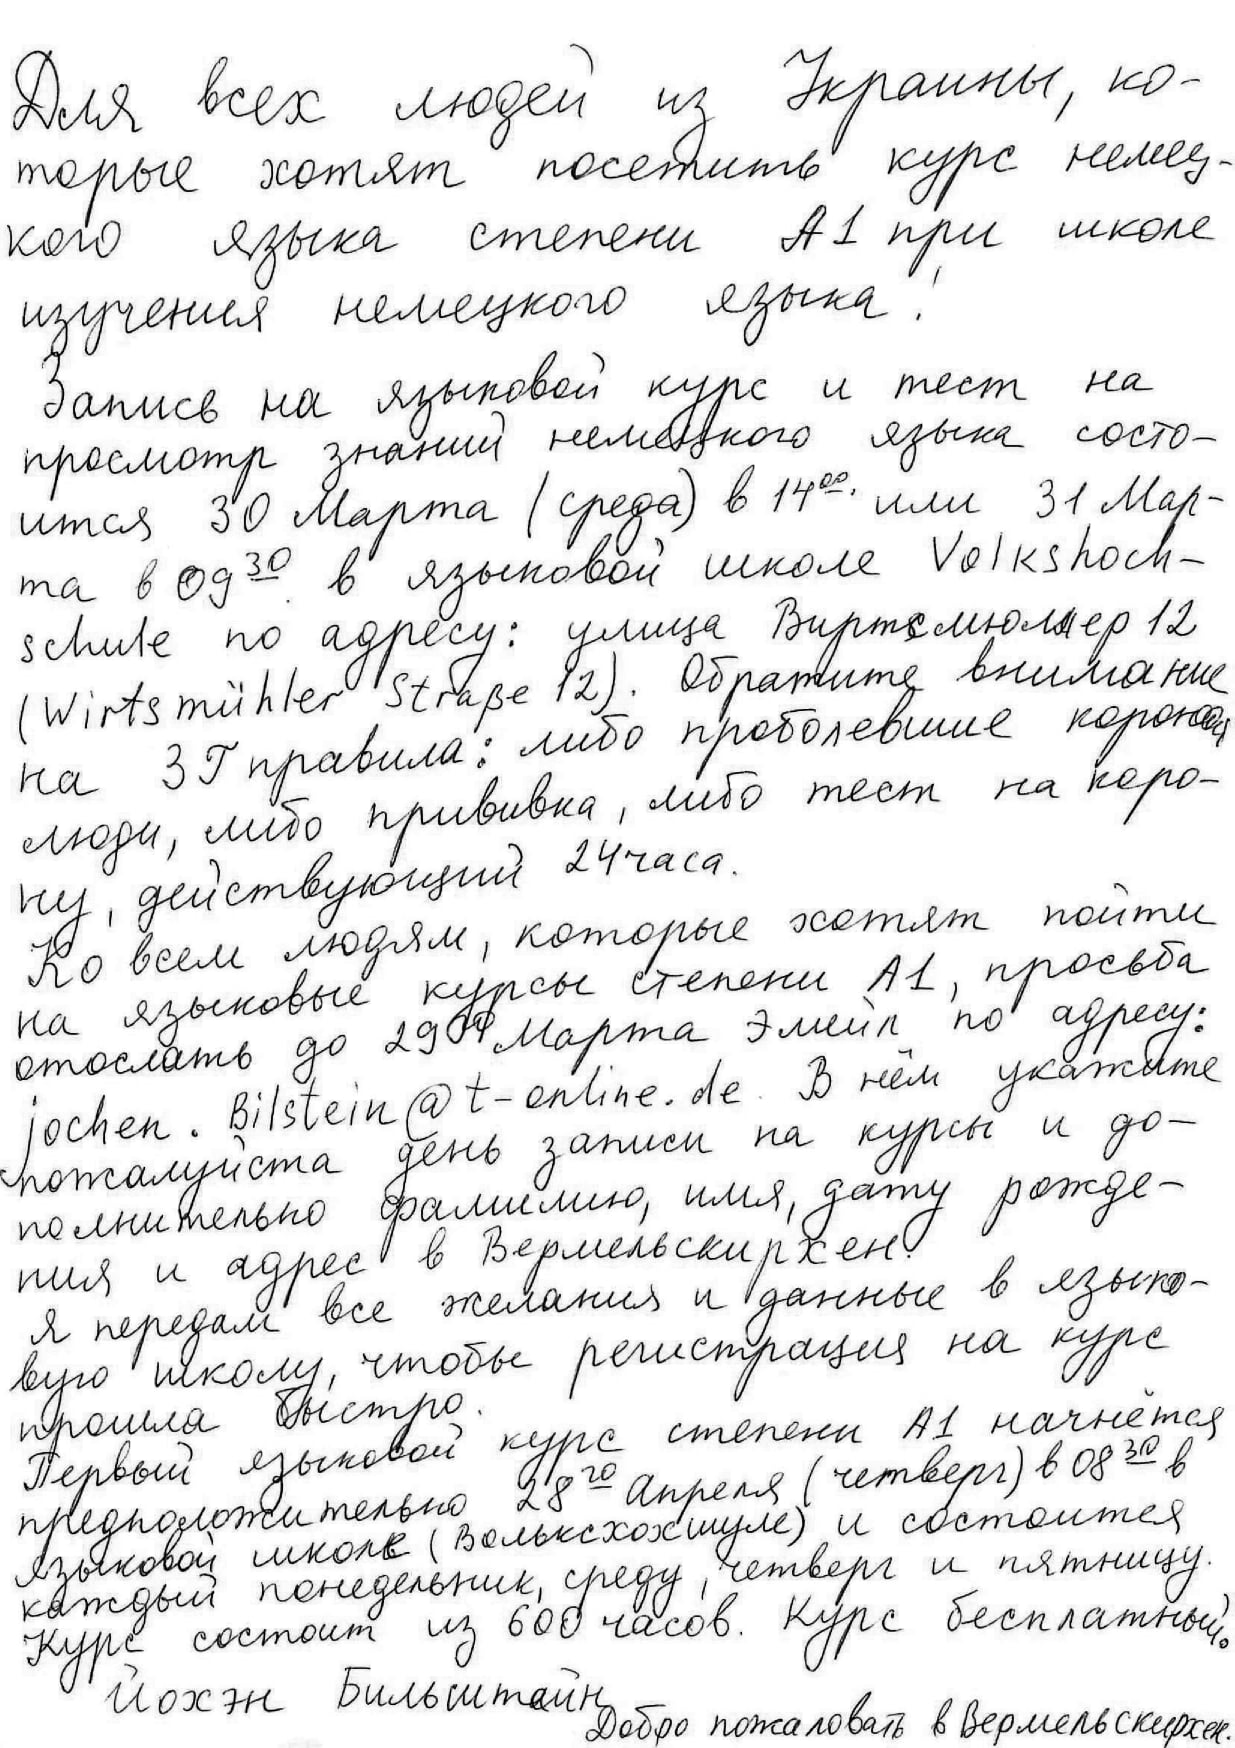 Для всех людей из Украины, ко-
торые хотят посетить курс немец-
кого языка степени А1 при школе
изучения немецкого языка!
Запись на языковой курс и тест на
просмотр знаний немецкого языка состо-
ится 30 Марта (среда) в 14 00. или 31 Мар-
та в 09 30 в языковой школе Volkshoch-
schule по адресу: улица Виртсмюллер 12
(Wirtsmühler Straße 12). Обратите внимание
на 3Г правила: либо проболевшие короной
люди, либо прививка, либо тест на коро-
ну, действующий 24 часа.
Ко всем людям, которые хотят пойти
на языковые курсы степени А1, просьба
отослать до 29 ого Марта Эмейл по адресу:
jochen.Bilstein@t-online.de. В нём укажите
пожалуйста день записи на курсы и до-
полнительно фамилию, имя, дату рожде-
ния и адрес в Вермельскирхен.
Я передам все желания и данные в языко-
вую школу, чтобы регистрация на курс
прошла быстро.
Первый языковой курс степени А1 начнётся
предположительно 28 го Апреля (четверг) в 08 30 в
языковой школе (Вольксхохшуле) и состоится
каждый понедельник, среду, четверг и пятницу.
Курс состоит из 600 часов. Курс бесплатный.
Йохэн Бильштайн
Добро пожаловать в Вермельскирхен.